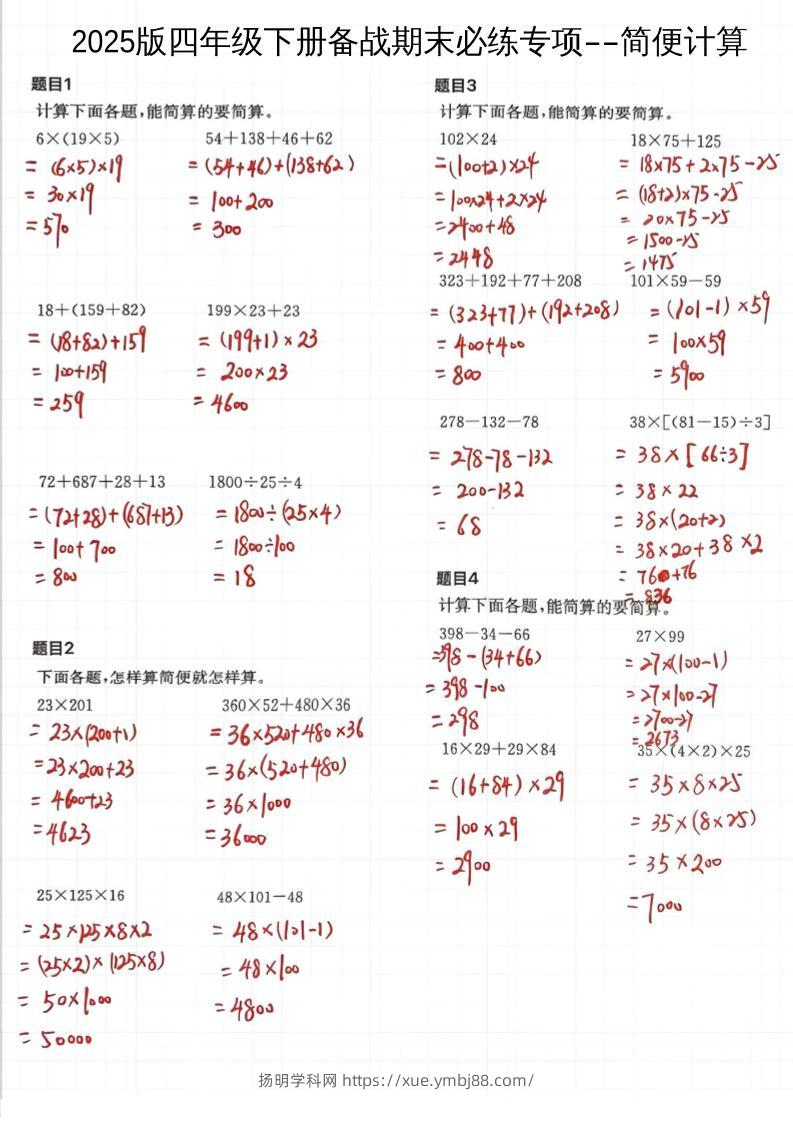 2025版四年级下册备战期末必练专项--简便计算
题目1
计算下面各题,能简算的要简算。
6×(19×5)
= (6×5)×19
= 30×19
= 570
54+138+46+62
= (54+46)+(138+62)
= 100+200
= 300
18+(159+82)
= (18+82)+159
= 100+159
= 259
199×23+23
= (199+1)×23
= 200×23
= 4600
72+687+28+13
= (72+28)+(687+13)
= 100+700
= 800
1800÷25÷4
= 1800÷(25×4)
= 1800÷100
= 18
题目2
下面各题,怎样算简便就怎样算。
23×201
= 23×(200+1)
= 23×200+23
= 4600+23
= 4623
360×52+480×36
= 36×520+480×36
= 36×(520+480)
= 36×1000
= 36000
25×125×16
= 25×125×8×2
= (25×2)×(125×8)
= 50×1000
= 50000
48×101-48
= 48×(101-1)
= 48×100
= 4800
题目3
计算下面各题,能简算的要简算。
102×24
= (100+2)×24
= 100×24+2×24
= 2400+48
= 2448
18×75+125
= 18×75+2×75-25
= (18+2)×75-25
= 20×75-25
= 1500-25
= 1475
323+192+77+208
= (323+77)+(192+208)
= 400+400
= 800
101×59-59
= (101-1)×59
= 100×59
= 5900
278-132-78
= 278-78-132
= 200-132
= 68
38×[(81-15)÷3]
= 38×[66÷3]
= 38×22
= 38×(20+2)
= 38×20+38×2
= 760+76
= 836
题目4
计算下面各题,能简算的要简算。
398-34-66
= 398-(34+66)
= 398-100
= 298
27×99
= 27×(100-1)
= 27×100-27
= 2700-27
= 2673
16×29+29×84
= (16+84)×29
= 100×29
= 2900
35×(4×2)×25
= 35×8×25
= 35×(8×25)
= 35×200
= 7000
扬明学科网 https://xue.ymbj88.com/